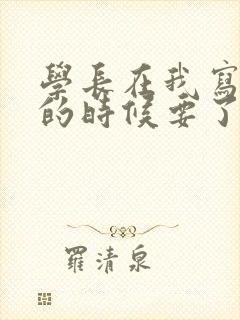 學長在我寫
的時候要了
羅清泉